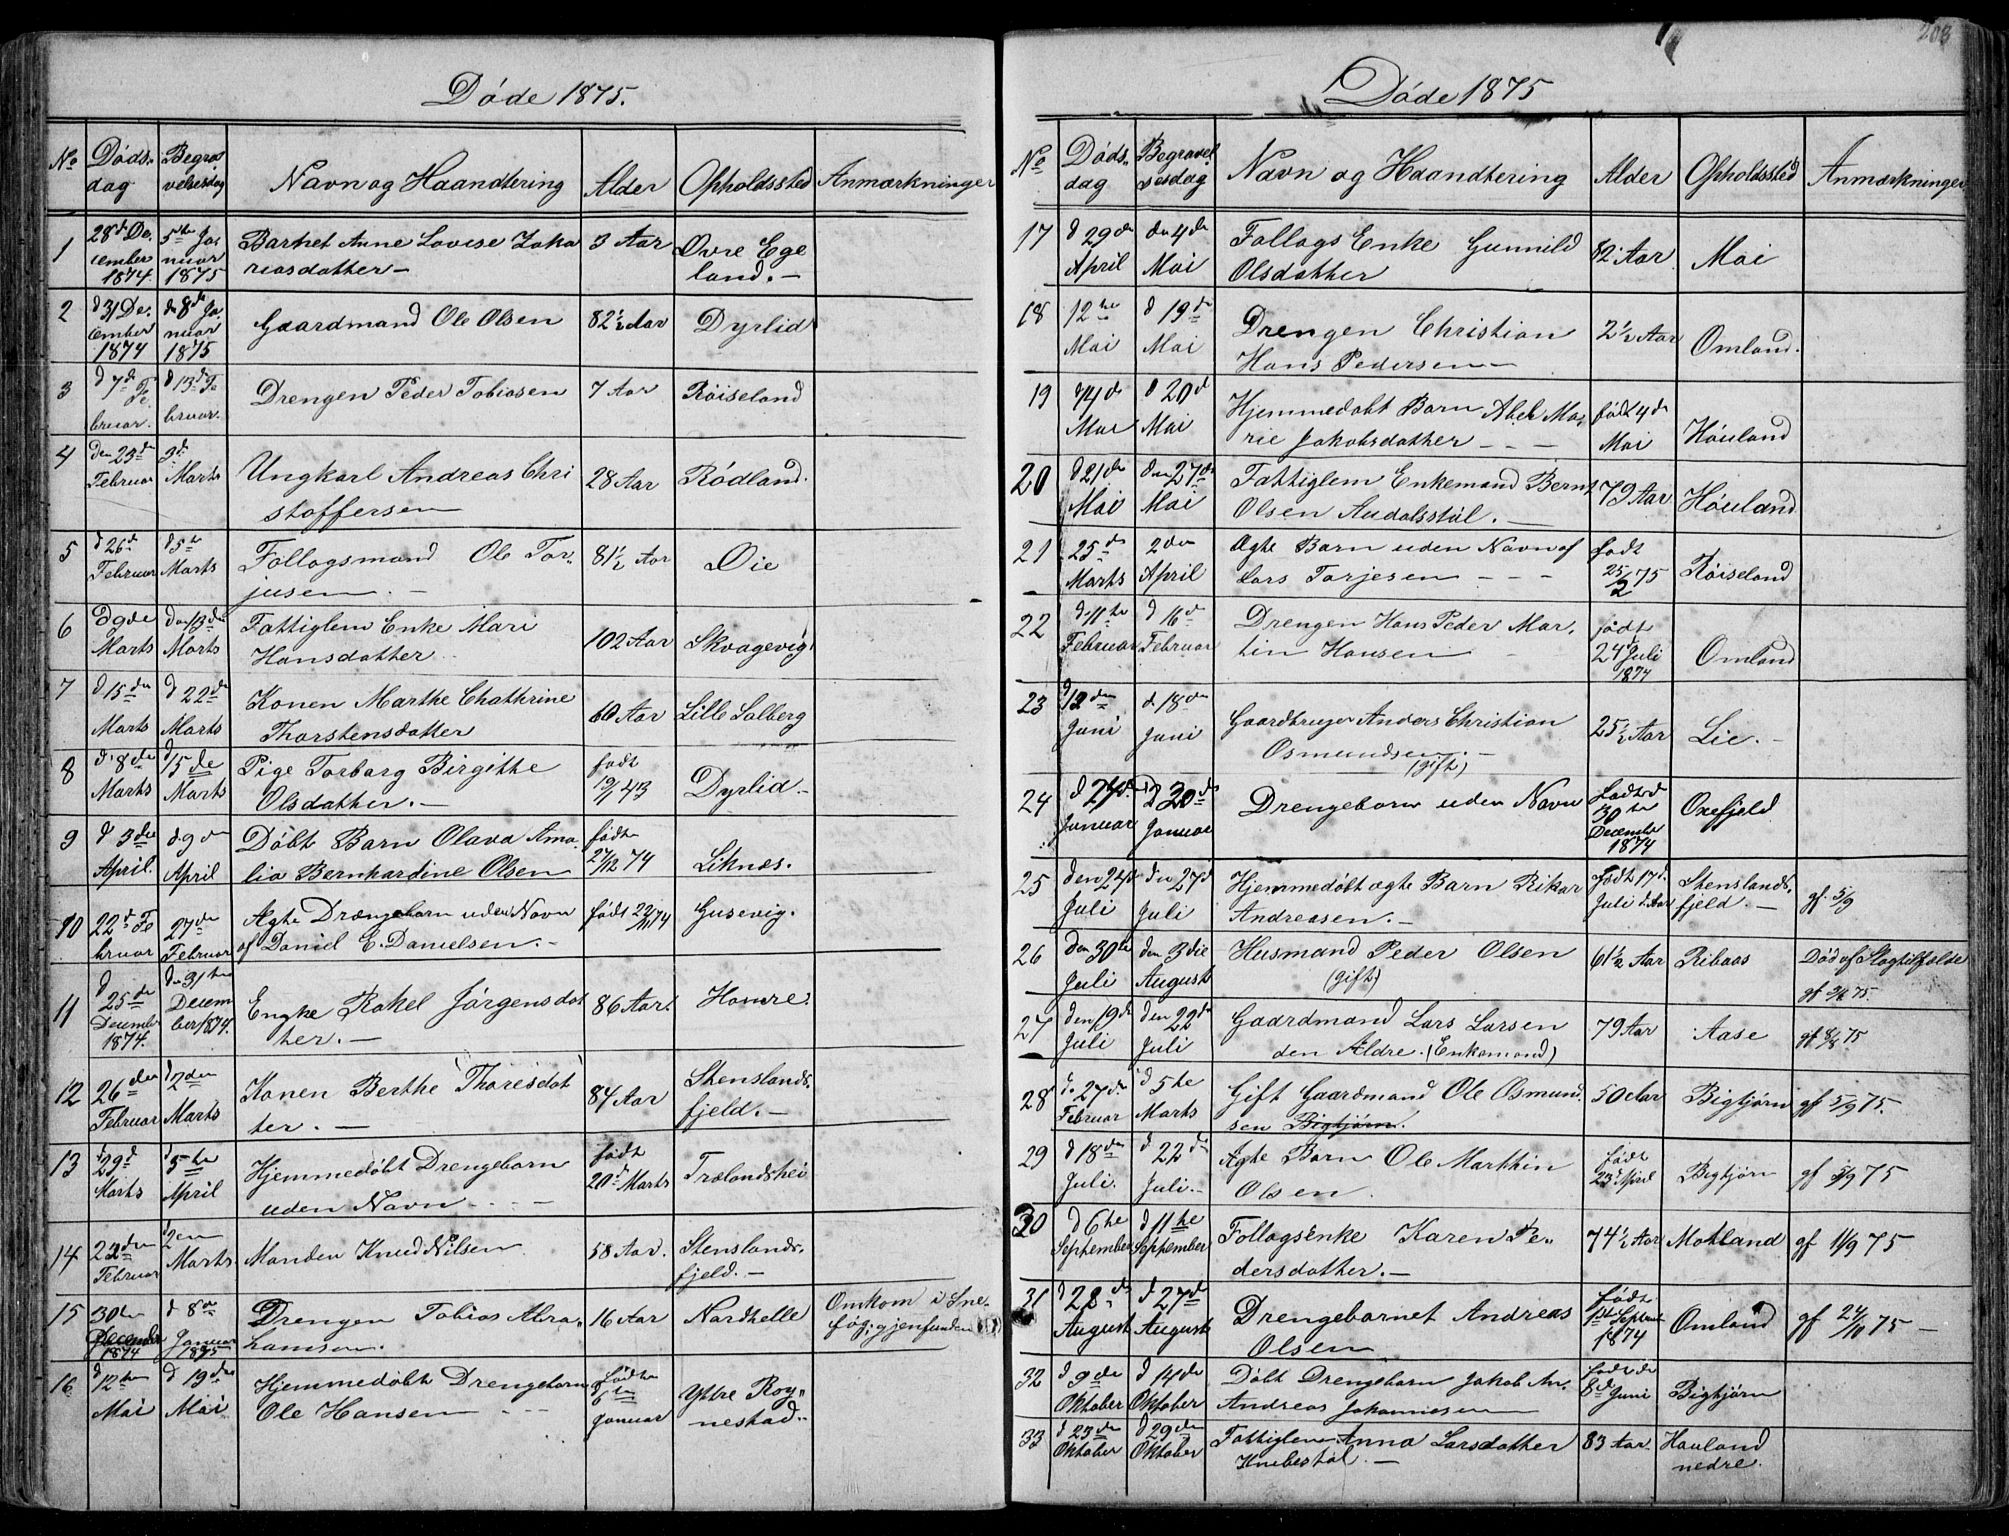 208
Døde 1875.
No
Døds-
dag
Begra-
velsesdag
Navn og Haandtering
Alder
Opholdssted
Anmærkninger
1
28d De-
cember
1874.
5te Ja-
nuar
1875
Barnet Anne Lovise Zaka
riasdatter –
3 Aar
Øvre Ege
land. –
2
d 31 De-
cember
1874
d 8de Ja-
nuar
1875
Gaardmand Ole Olsen
82½ Aar
Dyrlid
3
d 7de Fe-
bruar.
d 13de Fe
bruar.
Drengen Peder Tobiasen
7 Aar
Røiseland
4
Den 23de
Februar
3de
Marts
Ungkarl Andreas Chri
stoffersen
28 Aar
Rødland.
5
d 26d
Februar
d 5te
Marts
Føllogsmand Ole Tor-
jusen. –
81½ Aar
Øie
6
d 9de
Marts
den 13de
Marts
Fattiglem Enke Mari
Hansdatter
102 Aar
Skvagevig
7
d 15de
Marts
d 22de
Marts
Konen Marthe Chathrine
Thorstensdatter
60 Aar
Lille Salberg
8
d. 8de
Marts
d 15de
Marts
Pige Torborg Birgitte
Olsdatter. –
født
19/1 43
Dyrlid –
9
d 3die
April.
d. 9de
April
Døbt Barn Olava Ama-
lia Bernhardine Olsen
født
27/12 74
Liknæs.
10
22d Fe
bruar
27de
Februar
Ægte Drængebarn uden Navn
af Daniel E. Danielsen. –
født 22/11 74
Gusevig.
11
d
25de
December
1874.
d 31te
Decem
ber 1874.
Enke Rakel Jørgensdat
ter. –
86 Aar.
Hamre.
12
26den
Februar
d 2den
Marts
Konen Berthe Thoresdat
ter. –
84 Aar
Stenslands-
fjeld. –
13
d 29d
Marts
d 5te
April
Hjemmedøbt Drengebarn
uden Navn – – –
født
20de Marts
Trælandshei
14
22den
Februar
d 2en
Marts
Manden Knud Nilsen.
58 Aar.
Stenslands-
fjeld. –
15
30de
December
1874
d 8de
Januar
1875
Drengen Tobias Abra-
hamsen.
16 Aar
Nordhelle
Omkom i Sne-
føg, gjenfunden
16
d
12te
Mai
d 19de
Mai
Hjemmedøbt Drengebarn
Ole Hansen – – –
født
6te
Januar
Yttre Røy-
nestad.
Døde 1875
No
Døds-
dag
Begravel
sesdag
Navn og Haandtering
Alder
Opholdssted
Anmærkninger
17
d 29de
April
den 4de
Mai
Føllogs Enke Gunnild
Olsdatter
82 Aar
Moi
18
12te
Mai
d 19de
Mai
Drengen Christian
Hans Pedersen –
2½ Aar
Omland.
19
d 14de
Mai
d 20d
Mai
Hjemmedøbt Barn Abel Ma-
rie Jakobsdatter – – –
født 4de
Mai
Høuland
20
d 21de
Mai
den 27de
Mai
Fattiglem Enkemand Bernt
Olsen Audalsstøl. –
79 Aar
Høuland
21
25de
Marts
2den
April
Ægte Barn uden Navn af
Lars Tarjesen – – –
født
25/2 75
Røiseland
22
d. 11te
Februar
d 16de
Februar
Drengen Hans Peder Mar-
tin Hansen –
født
24 Juli
1874
Omland
23
d 12den
Juni
d 18de
Juni
Gaardbruger Anders Christian
Osmundsen. –
(gift)
25½ Aar
Lie. –
24
d 24de
Januar
d 30de
Januar
Drengebarn uden Navn
født d
30te
December
1874
Oxefjeld
25
den 24d
Juli
den 27d
Juli
Hjemmedøbt ægte Barn Rikar
Andreasen. –
født 17d
Juli d. Aar
Stenslands-
fjeld. –
gf. 5/9
26
den 30te
Juli
den 3die
August
Husmand Peder Olsen
(gift)
61½ Aar
Ribaas
Død af Slagtilfælde
27
den 19de
Juli
den 22de
Juli
Gaardmand Lars Larsen
den Ældre. (Enkemand)
79 Aar
Aase
gf 8/8 75
28
d. 27de
Februar
d 5te
Marts
Gift Gaardmand Ole Osmund-
sen Bigtjørn.
50 Aar
Bigtjørn
gf 5/9 75.
29
d 18de
Juli.
d 22de
Juli. –
Ægte Barn Ole Marthin
Olsen.
født
23d April
Bigtjørn
gf 5/9 75
30
d 6te
September
d 11te
September
Føllogsenke Karen Pe-
dersdatter. –
74½ Aar
Motland
gf 11/9 75
31
d
23de
August
d 27de
August
Drengebarnet Andreas
Olsen
født
1874
Omland
gf 24/10 75 –
32
d 9de
Oktober
d 14de
Oktober
Døbt Drengebarn Jakob An-
Andreas Johannesen
født de
8de Juni
Bigtjørn
33
d 23de
Oktober
d 29de
Oktober
Fattiglem Anna Larsdatter
Knibestøl. –
83 Aar.
Hauland
nedre.